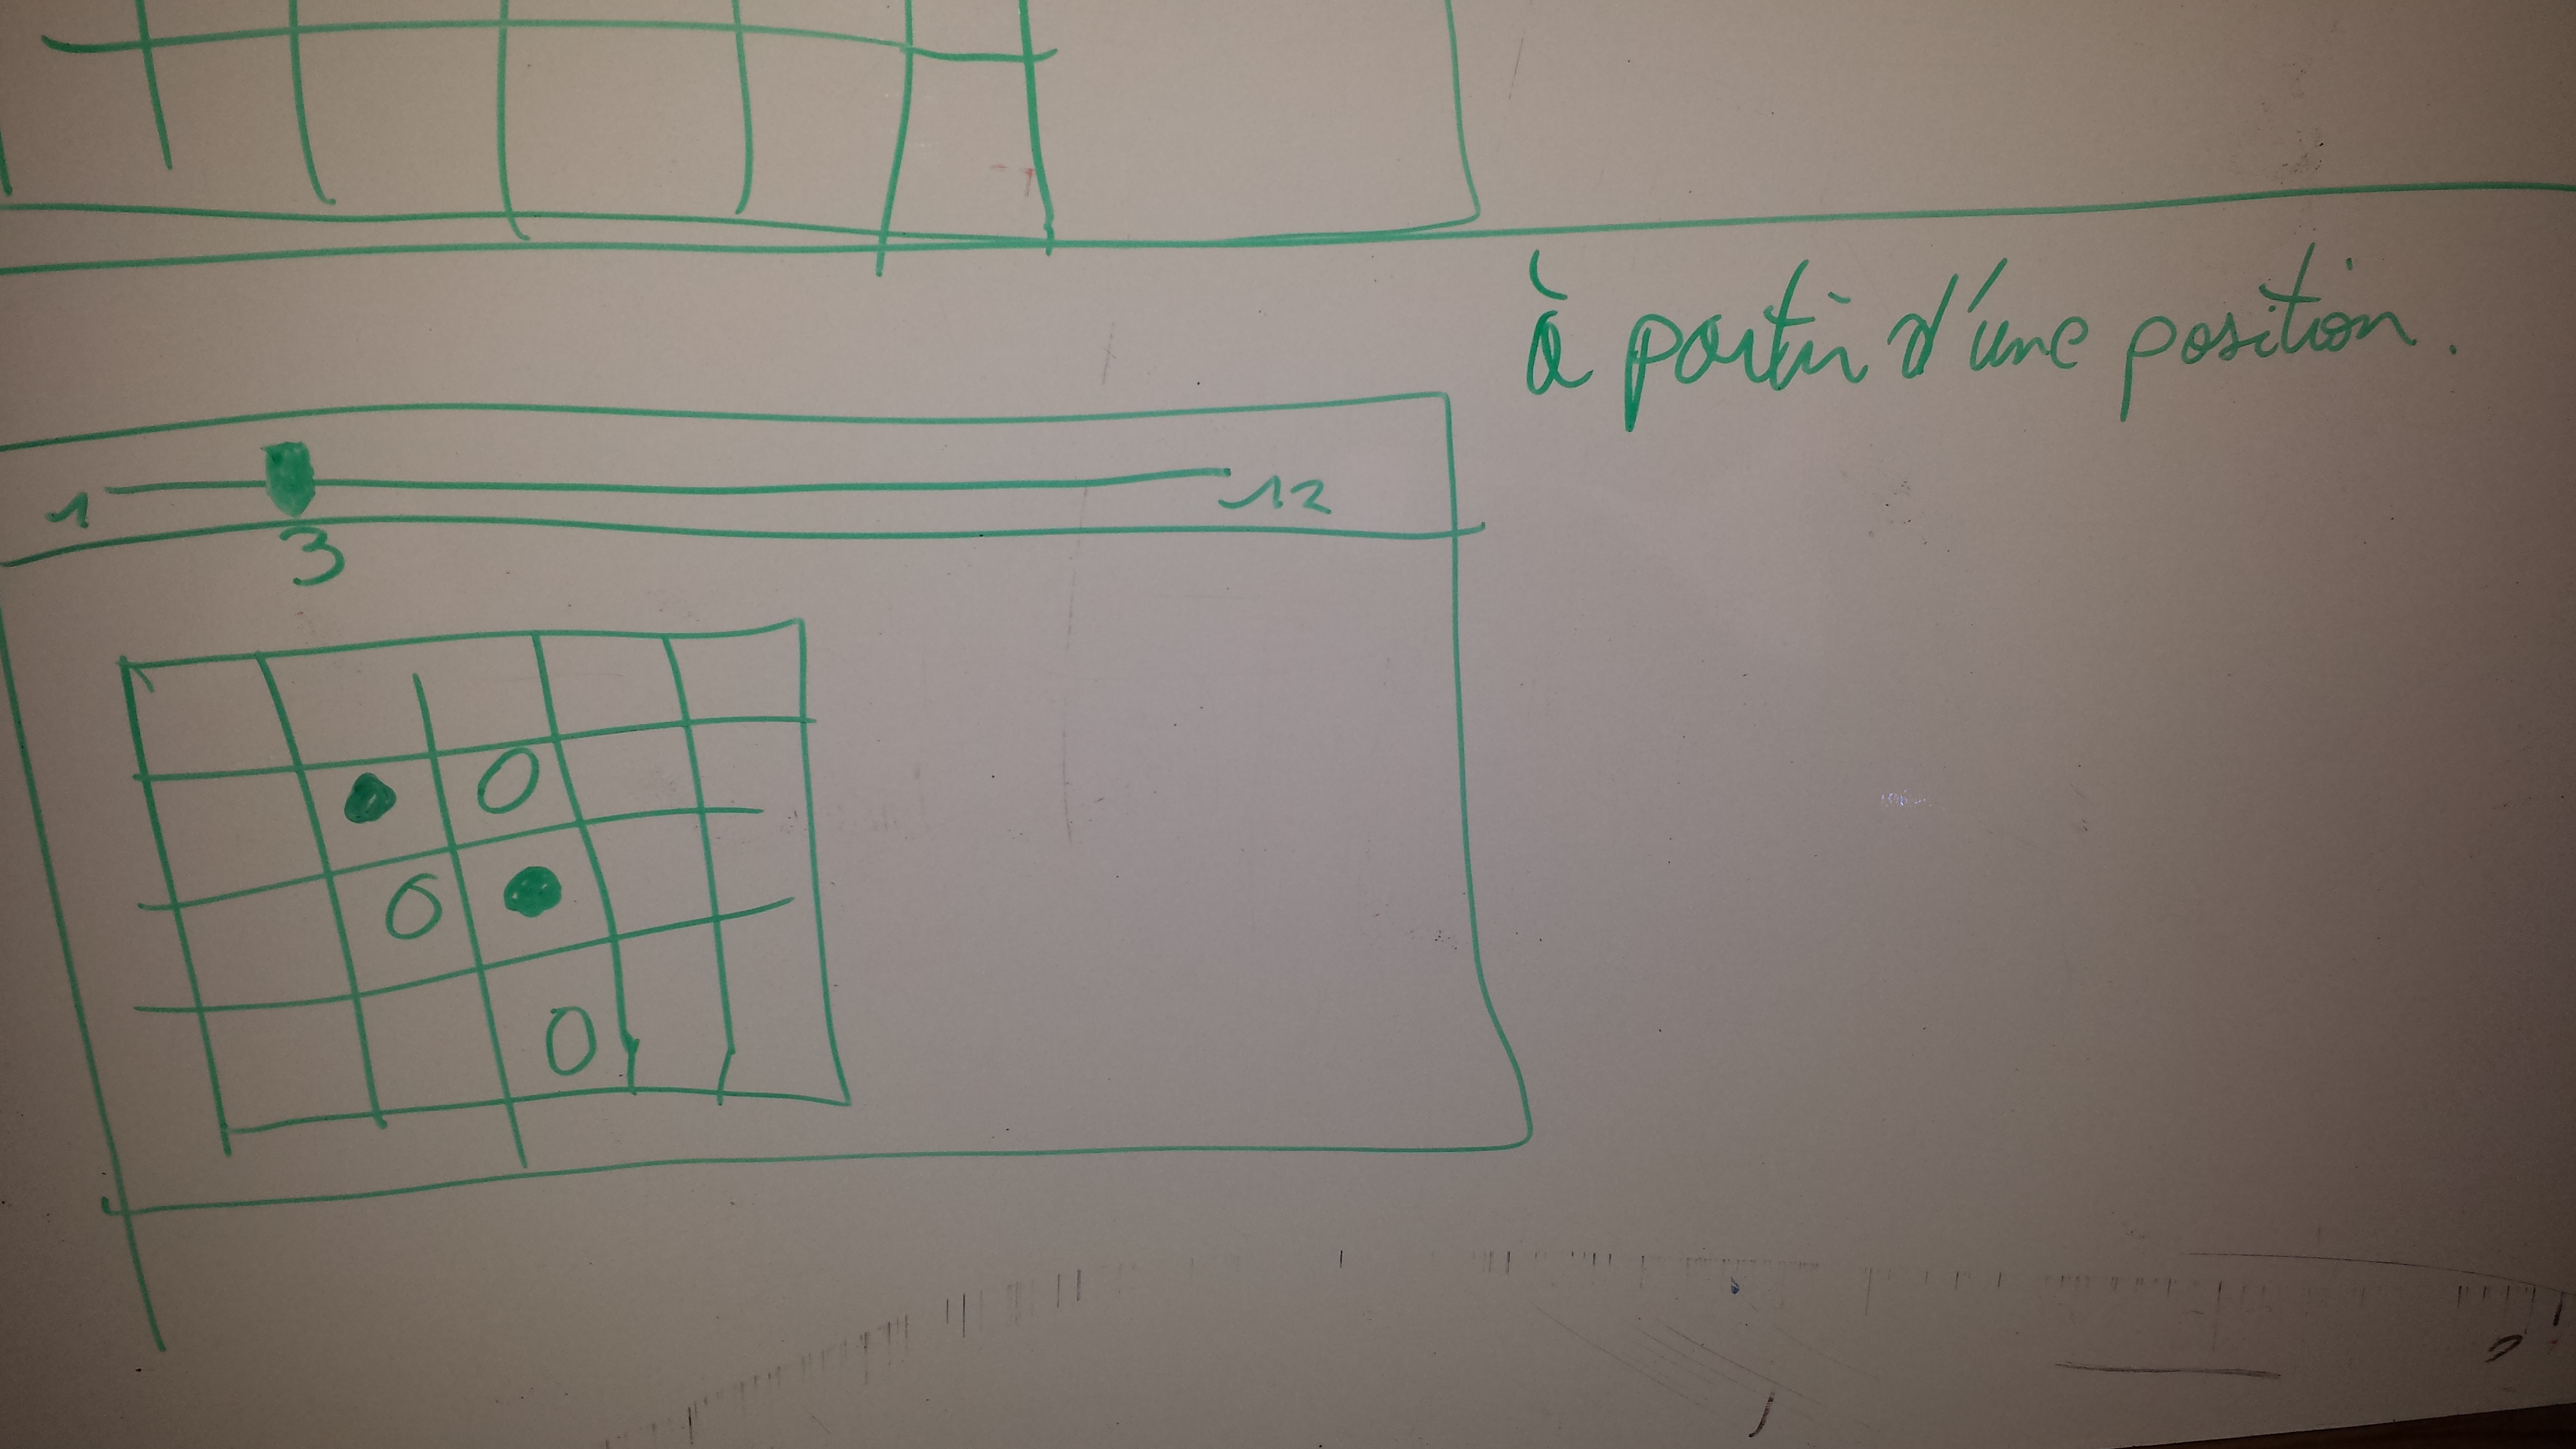 à partir d'une position.
1 12
3
0
0
0